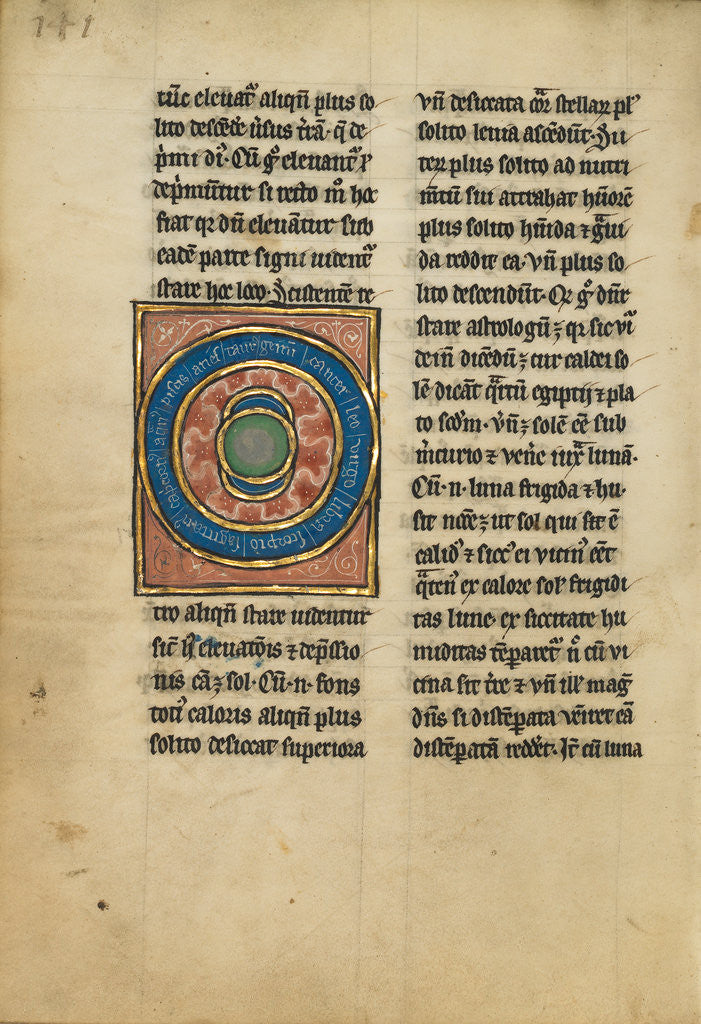 141
tūc eleuat᷑ aliqn̄ plus so
lito descēde᷑ ūsus t᷑rā· q̄ de
p̄mi dr̄· Cū gͦ eleuant᷑ ⁊
dep̄muntur si recto mͦ hoc
fiat qꝛ dn̄ eleuātur sub
eadē parte signi uident᷑
stare hoc loco· Existente re
aries
taur᷒
gemī
cancer
leo
uirgo
libra
scorpio
sagittari᷒
capͥcorn᷒
aqͣri᷒
piscis
tro aliqn̄ stare uidentur
sic̄ eleuatōis ⁊ dep̄ssio
nis cā ꝫ sol· Cū·n· fons
toti᷒ caloris aliqn̄ plus
solito desiccat superiora
vn̄ desiccata corͣ stellaꝝ pl᷒
solito leuia ascēdūt· Jn
teꝝ plus solito ad nutri
mtū sui attrahat hūorē
plus solito hūida ⁊ gͣui
da reddit ea· vn̄ plus so
lito descendūt· Qꝛ gͦ dn̄r
stare astrologū ꝫ qꝛ sic vi᷑
dein̄ dicēdū ꝫ cur caldei so
lē dicāt qͣrtū egiptij ⁊ pla
to scd̄m· Vn̄ ꝫ solē eē sub
m̄curio ⁊ ven̄e iuxͣ lunā·
Cū·n· luna frigida ⁊ hu·
sit nēcē ꝫ ut sol qui sit ē
calid᷒ ⁊ sicc᷒ ei vicin᷒ eēt
qͣten᷒ ex calore sol᷒ frigidi
tas lune· ex siccitate hu
miditas tēꝑaret᷑ nͦ cū vi
cina sit tre ⁊ vn̄ ill᷒ mag᷑
dn̄s si distēꝑata veniret eā
distēꝑatā redd᷑et· Jt̄ cū luna